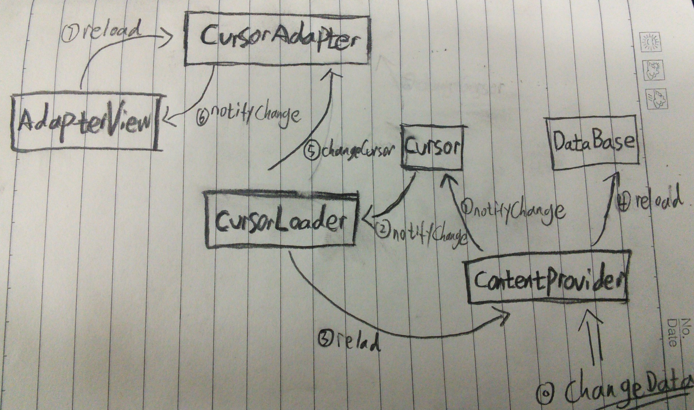 ⑦reload
CursorAdapter
AdapterView
⑥notifyChange
⑤changeCursor
Cursor
DataBase
CursorLoader
②notifyChange
①notifyChange
④reload
ContentProvider
③relad
No.
Date
⓪ ChangeData